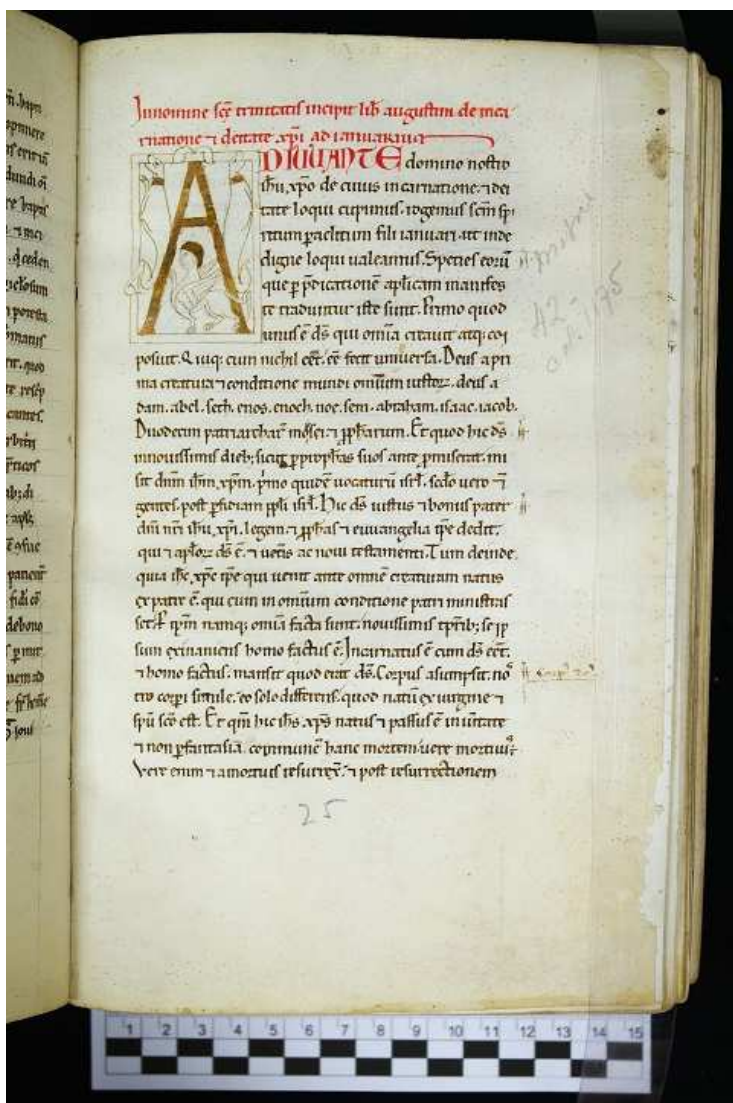 Innomine sce trinitatis incipit lib augustini de inca
rnatione ⁊ deitate xpi ad ianuariu
ADIUUANTE domino nostro
ihu xpo de cuius incarnatione ⁊ dei
tate loqui cupimus. rogemus scm spi
ritum paclitum fili ianuari. ut inde
digne loqui ualeamus. Species eoru
que p pdicatione aplicam manifes
te traduntur iste sunt. Primo quod
unus e ds qui omia creauit atq; co
posuit. Quiq; cum nichil eet. ee fecit uniuersa. Deus a pri
ma creatura ⁊ conditione mundi omium iustoꝝ. deus a
dam. abel. seth. enos. enoch. noe. sem. abraham. isaac. iacob.
Duodecim patriarchar moysei ⁊ ppharum. Et quod hic ds
innouissimis dieb; sicut p prophas suos ante pmiserat. mi
sit dnm ihm xpm. pmo quide uocaturu isrl. scdo uero ⁊
gentes. post pfidiam ppli isrl. Hic ds iustus ⁊ bonus pater
dni nri ihu xpi. legem ⁊ pphas ⁊ euuangelia ipe dedit.
qui ⁊ aploꝝ ds e. ⁊ uetis ac noui testamenti. Tum deinde
quia ihc xpc ipe qui uenit ante omne creaturam natus
ex patre e. qui cum in omium conditione patri ministras
set. P ipm namq; omia facta sunt. nouissimis tprib; se ip
sum exinaniens homo factus e. Incarnatus e cum ds eet.
⁊ homo factus. mansit quod erat ds. Corpus asumpsit. no
tro corpi simile. eo solo differens. quod natu ex uirgine ⁊
spu sco est. Et qm hic ihs xps natus ⁊ passus e in uitate
⁊ non p fantasia. commune hanc mortem. uere mortuus.
Vere enim ⁊ a mortuis resurrex. ⁊ post resurrectionem
25
42
cod. 1175
1 2 3 4 5 6 7 8 9 10 11 12 13 14 15